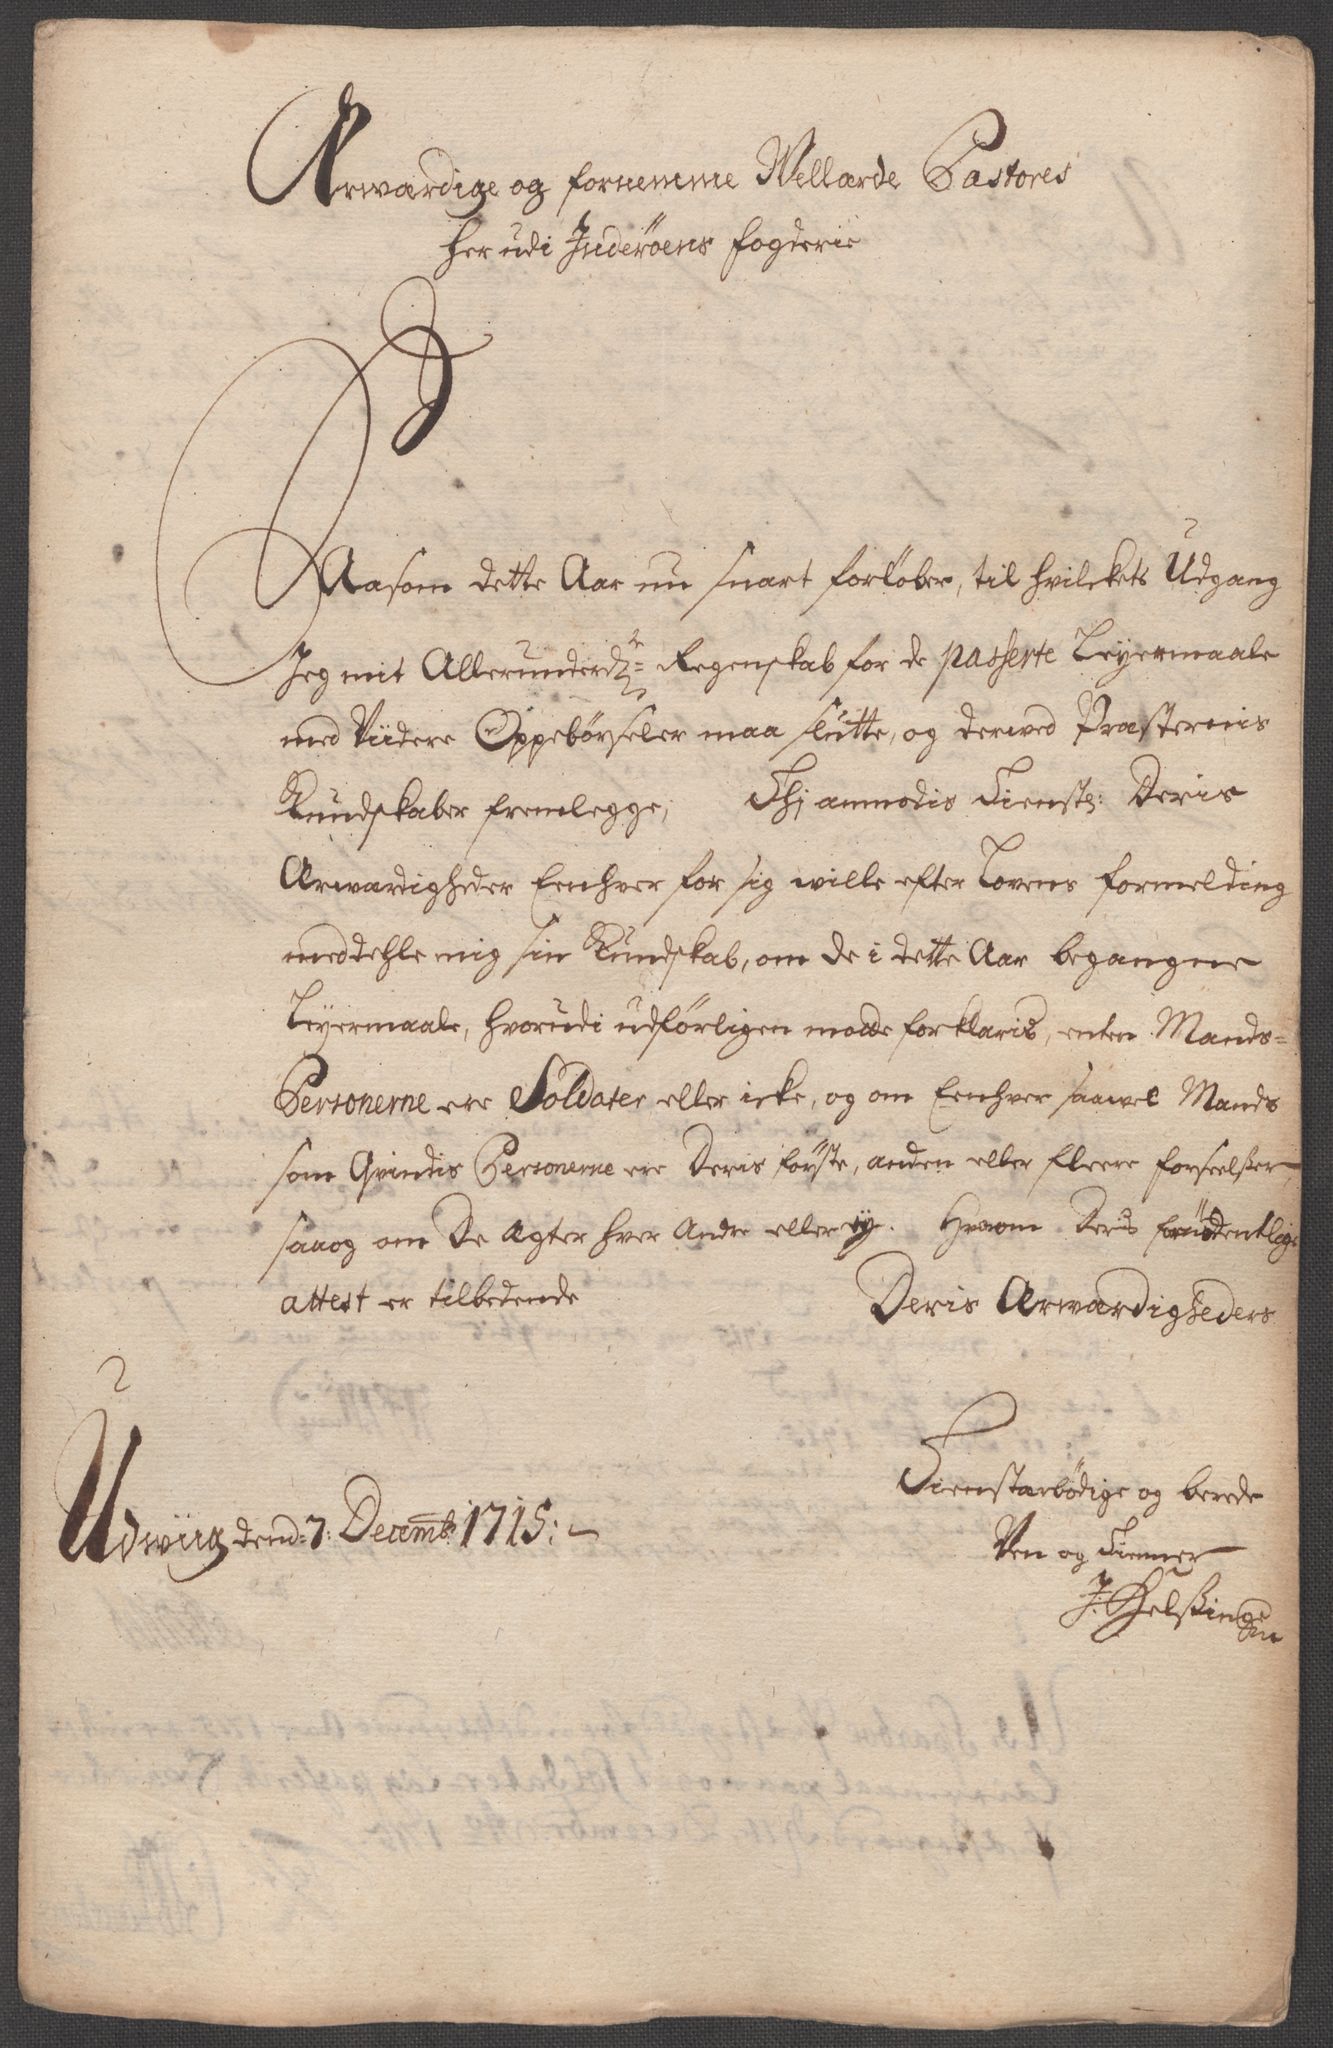 Ærværdige og fornemme Wellærde Pastores
her udi Inderøens fogderie
Saasom dette Aar nu snart forløber, til hvilckets Udgang
Jeg mit Allerunderd: Regenskab for de passerte Leyermaale
med Viidere Oppebørseler maa slutte, og derved Præsternis
Kundskaber fremlegge, Thj anmodis tienstl: Deris
Ærwærdigheder Eenhver for sig wille efter Lovens formelding
meddehle mig sin Kundskab, om de i dette Aar begangne
Leyermaale, hvorudi udførligen motte forklaris, enten Mands-
Personerne ere Soldater eller icke, og om Eenhver saavel Mands
som Qvindis Personerne ere Deris første, anden eller fleere forseelßer,
saaog om De Ægter hver Andre eller ey. Hvorom Deris
attest er tilbedende Deris Ærwærdigheders
Tienstærbødige og berede
Udwiig dend: 7: Decemb: 1715:
Ven og Tienner
J. Helßing